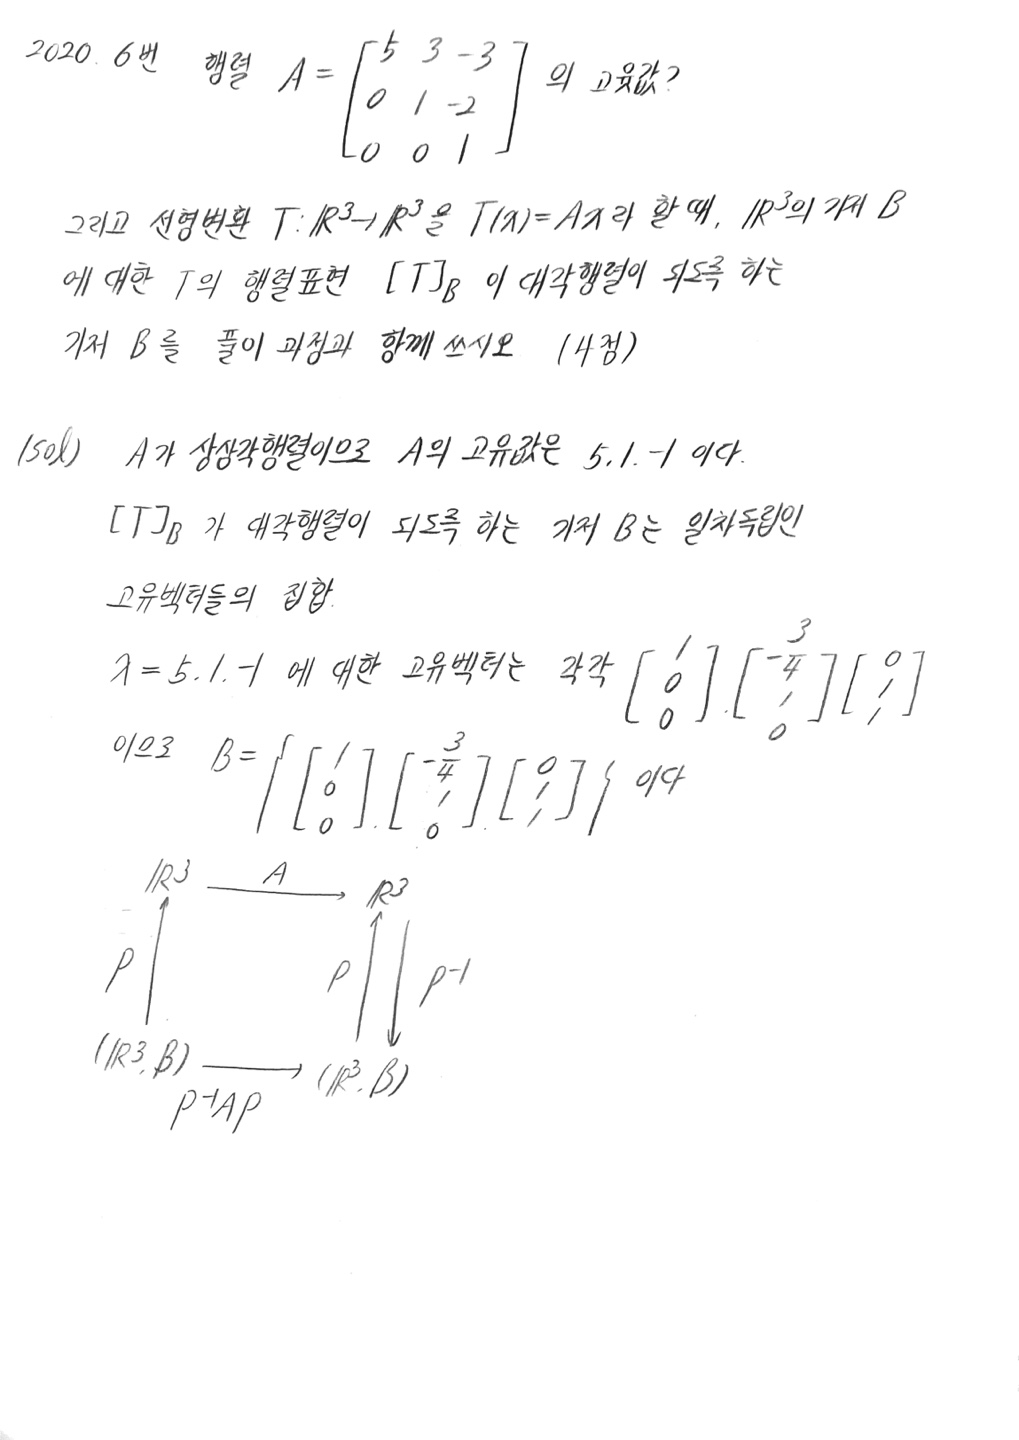 2020. 6번 행렬 A = [5 3 -3; 0 1 -2; 0 0 1] 의 고윳값?
그리고 선형변환 T: ℝ³→ℝ³을 T(x)=Ax라 할 때, ℝ³의 기저 B
에 대한 T의 행렬표현 [T]_B 이 대각행렬이 되도록 하는
기저 B를 풀이 과정과 함께 쓰시오 (4점)
(sol) A가 상삼각행렬이므로 A의 고유값은 5. 1. -1 이다.
[T]_B 가 대각행렬이 되도록 하는 기저 B는 일차독립인
고유벡터들의 집합.
λ = 5. 1. -1 에 대한 고유벡터는 각각 [1; 0; 0]. [-3/4; 1; 0] [0; 1; 1]
이므로 B = { [1; 0; 0]. [-3/4; 1; 0]. [0; 1; 1] } 이다
ℝ³ A ℝ³
P P P⁻¹
(ℝ³, B) (ℝ³, B)
P⁻¹AP